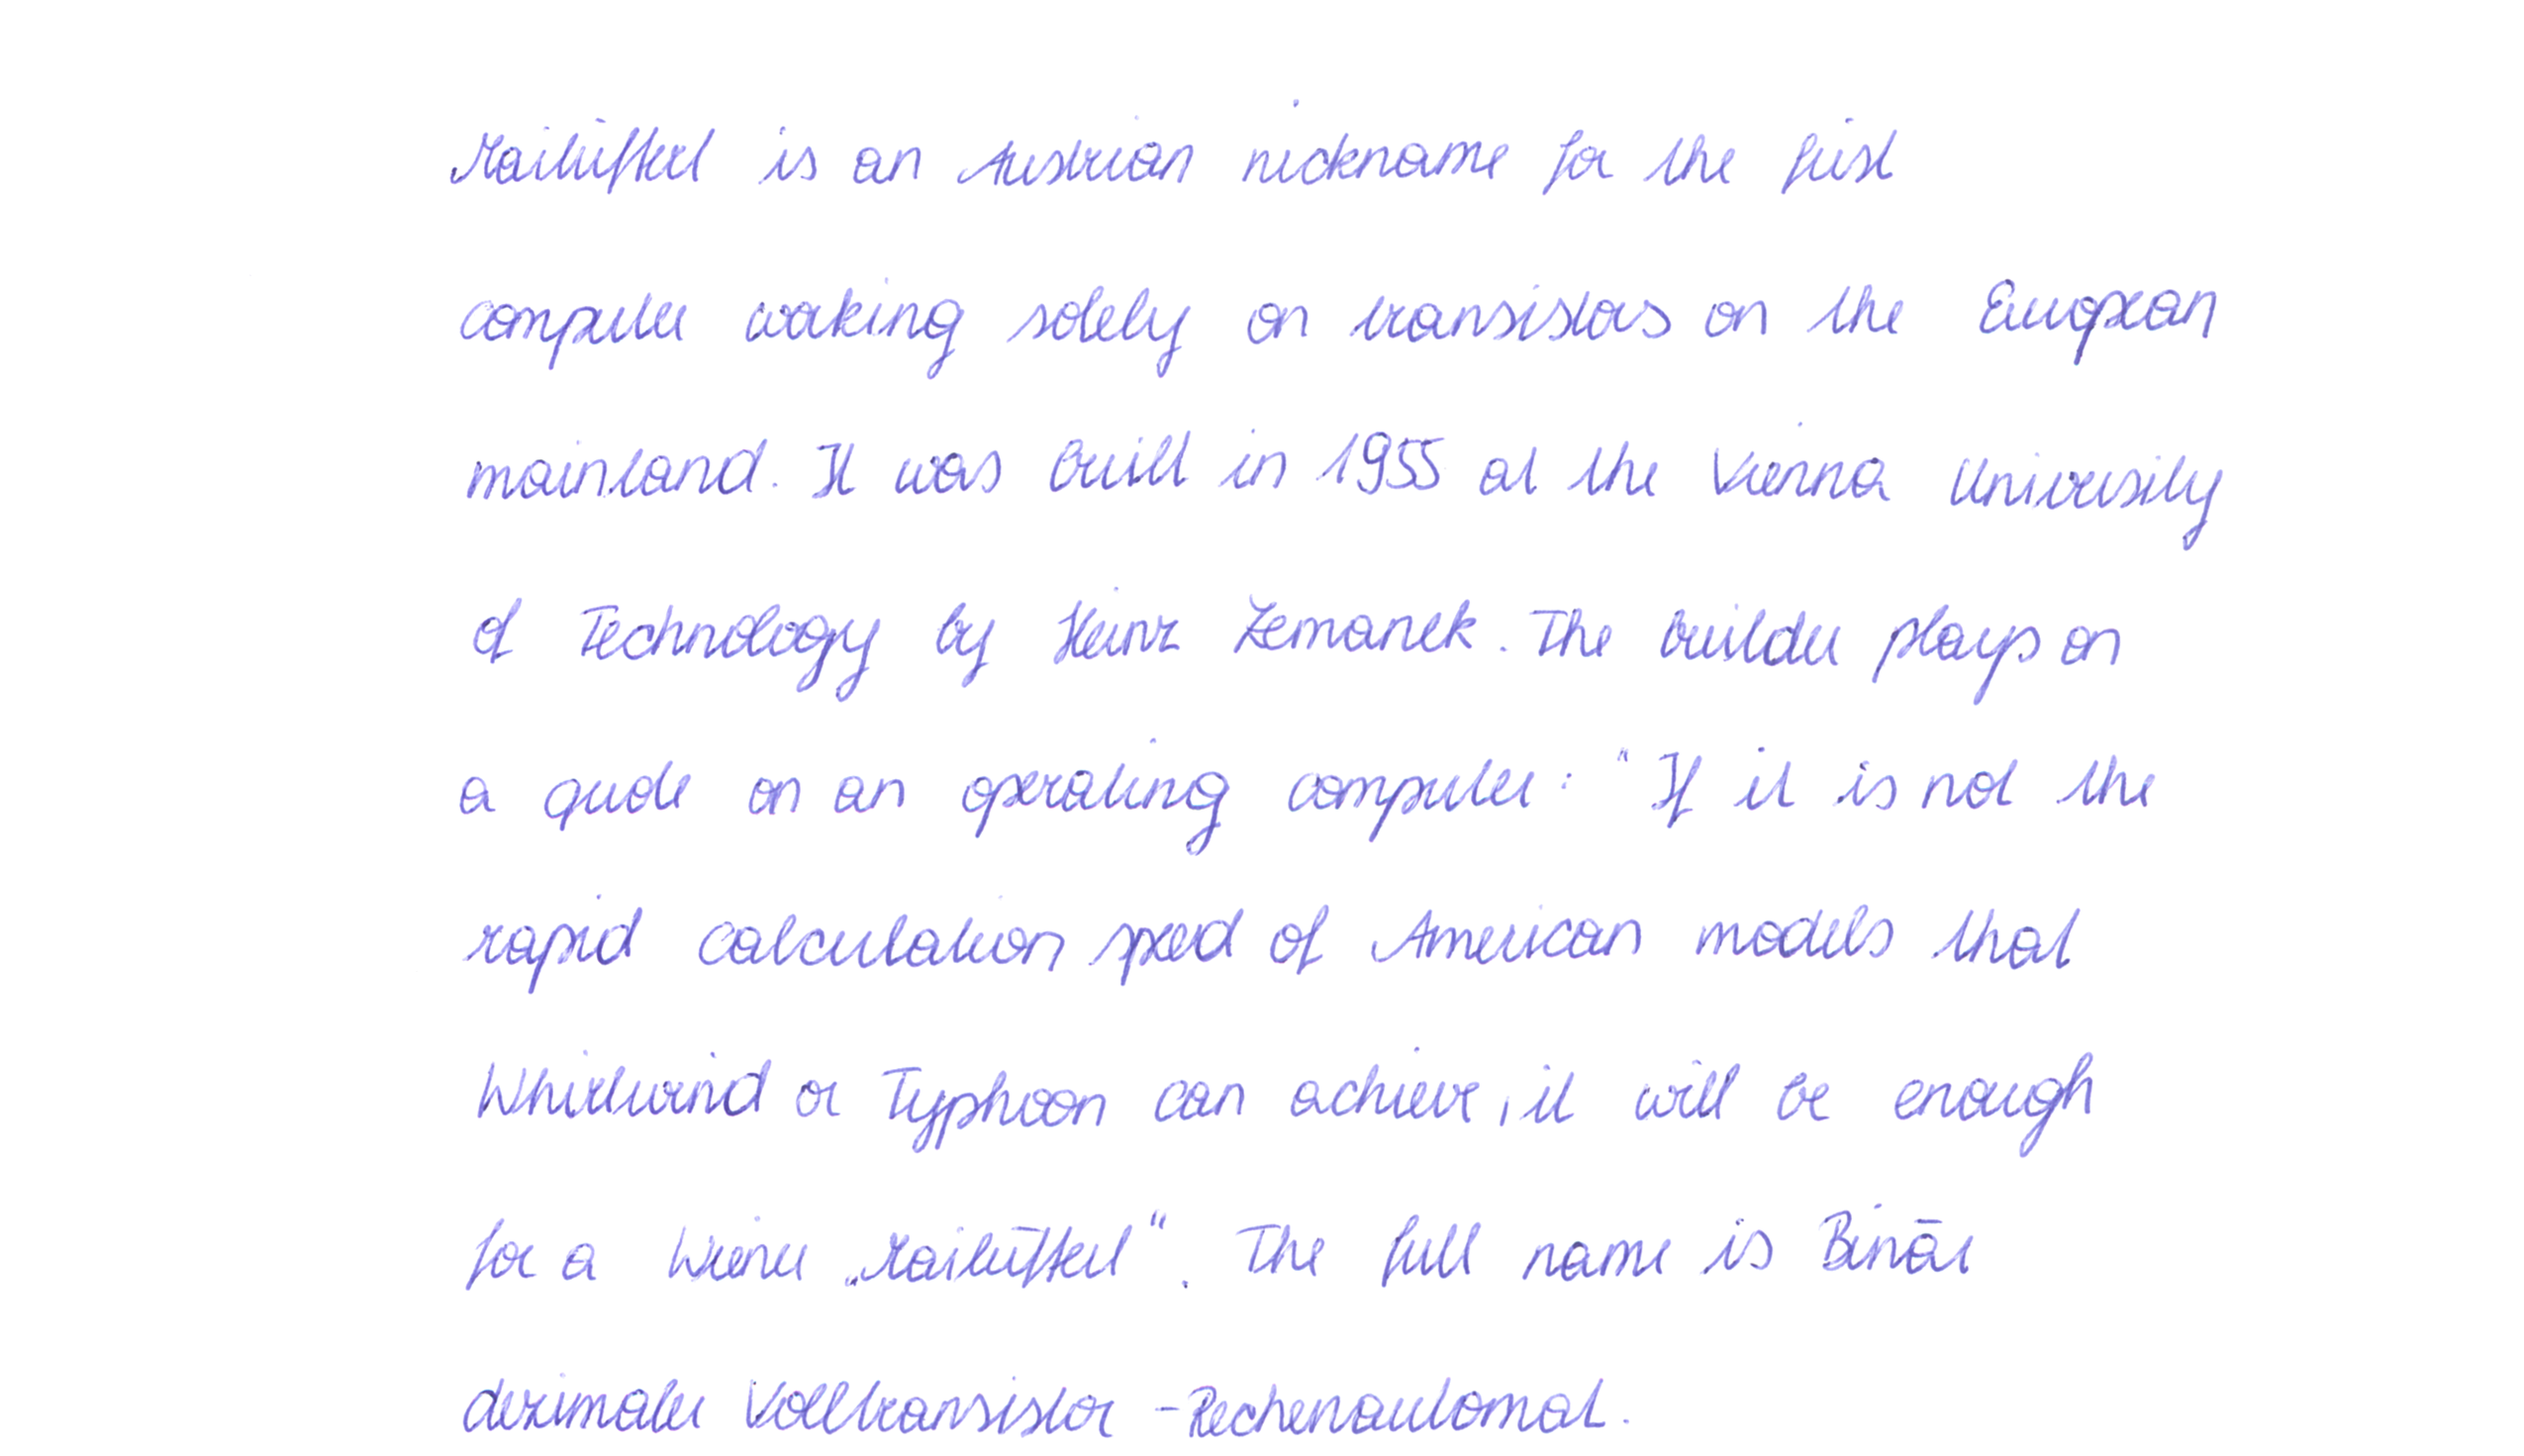 Mailüfterl is an Austrian nickname for the first
computer working solely on transistors on the European
mainland. It was built in 1955 at the Vienna University
of Technology by Heinz Zemanek. The builder plays on
a quote on an operating computer: "If it is not the
rapid calculation speed of American models that
Whirlwind or Typhoon can achieve, it will be enough
for a Wiener „Mailüfterl“. The full name is Binär
dezimaler Volltransistor -Rechenautomat.